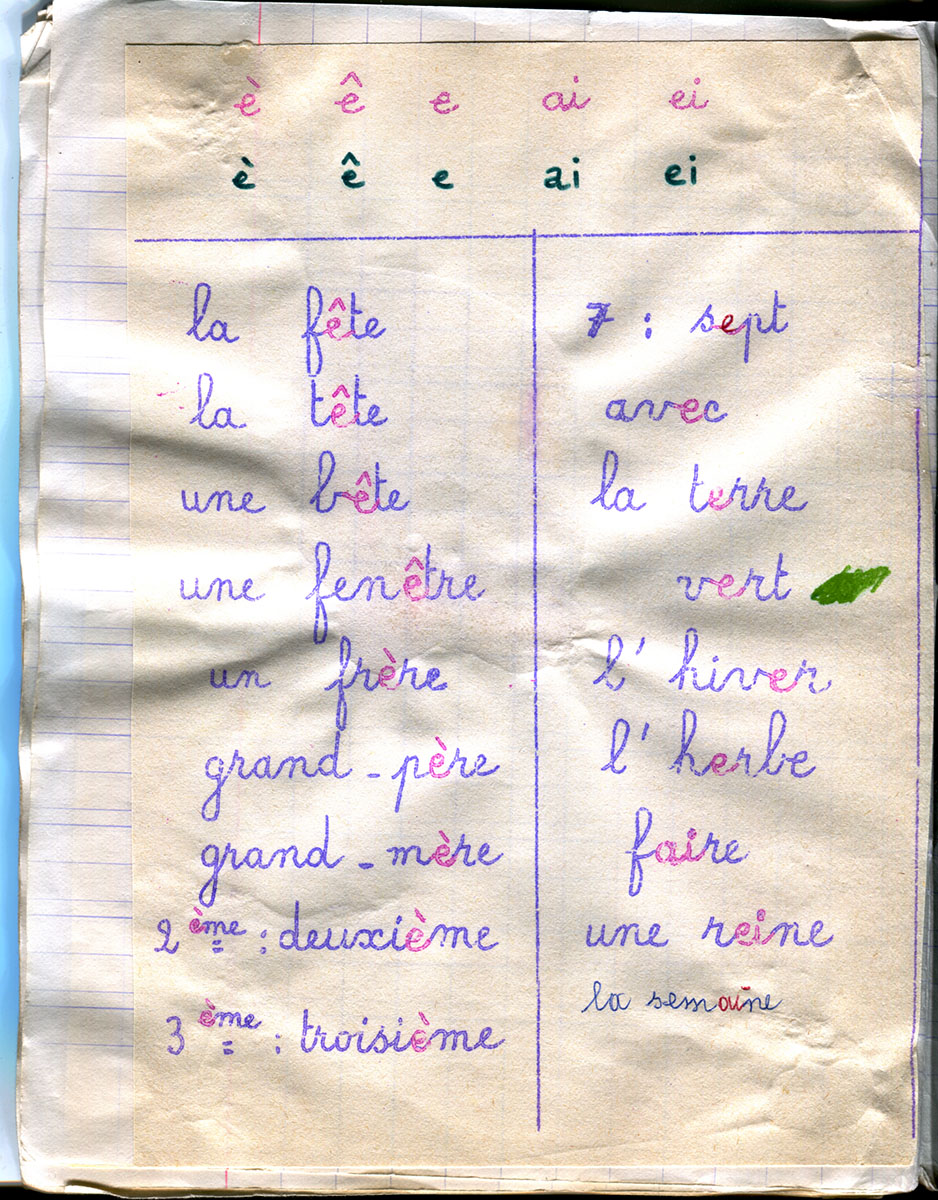 è ê e ai ei
è ê e ai ei
la fête
la tête
une bête
une fenêtre
un frère
grand-père
grand-mère
2ème : deuxième
3ème : troisième
7 : sept
avec
la terre
vert
l'hiver
l'herbe
faire
une reine
la semaine